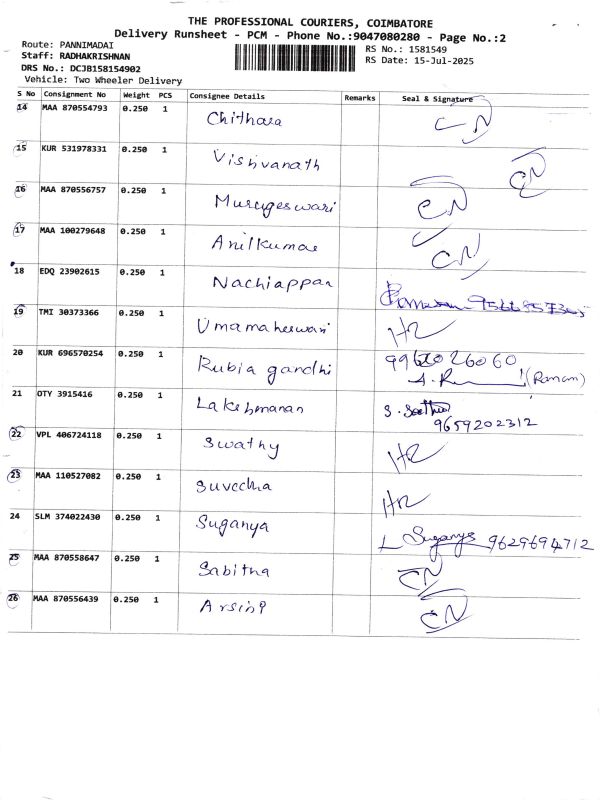 THE PROFESSIONAL COURIERS, COIMBATORE
Delivery Runsheet - PCM - Phone No.:9047080280 - Page No.:2
Route: PANNIMADAI
Staff: RADHAKRISHNAN
DRS No.: DCJB158154902
Vehicle: Two Wheeler Delivery
RS No.: 1581549
RS Date: 15-Jul-2025
S No Consignment No Weight PCS Consignee Details Remarks Seal & Signature
14 MAA 870554793 0.250 1 Chithara CN
15 KUR 531978331 0.250 1 Vishvanath CN
16 MAA 870556757 0.250 1 Murugeswari CN
17 MAA 100279648 0.250 1 Anilkumar CN
18 EDQ 23902615 0.250 1 Nachiappan
19 TMI 30373366 0.250 1 Umamaheswari HR
20 KUR 696570254 0.250 1 Rubia gandhi
(Ramam)
21 OTY 3915416 0.250 1 Lakshmanan
9659202312
22 VPL 406724118 0.250 1 Swathy HR
23 MAA 110527082 0.250 1 Suvedha HR
24 SLM 374022430 0.250 1 Suganya Suganya 9629694712
25 MAA 870558647 0.250 1 Sabitha CN
26 MAA 870556439 0.250 1 CN